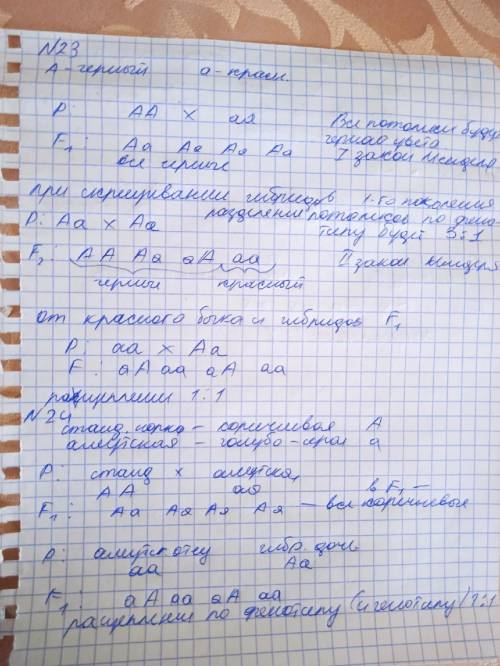 N23
А-черный а-красн.
P: АА х аа Все потомки будут
черного цвета
F₁: Аа Аа Аа Аа I закон Менделя
все черные
при скрещивании гибридов 1-го поколения
разделение потомков по фено-
P: Аа х Аа типу будет 3:1
F₂: АА Аа аА аа II закон Менделя
черные красный
от красного быка и гибридов F₁
P: аа х Аа
F: аА аа аА аа
расщепление 1:1
N24
станд. норка - коричневая А
алеутская - голубо-серая а
P: станд х алеутская
АА аа в F₁ -
F₁: Аа Аа Аа Аа - все коричневые
P: алеутск отец гибр. дочь
аа Аа
F₁: аА аа аА аа
расщепление по фенотипу (и генотипу) 1:1